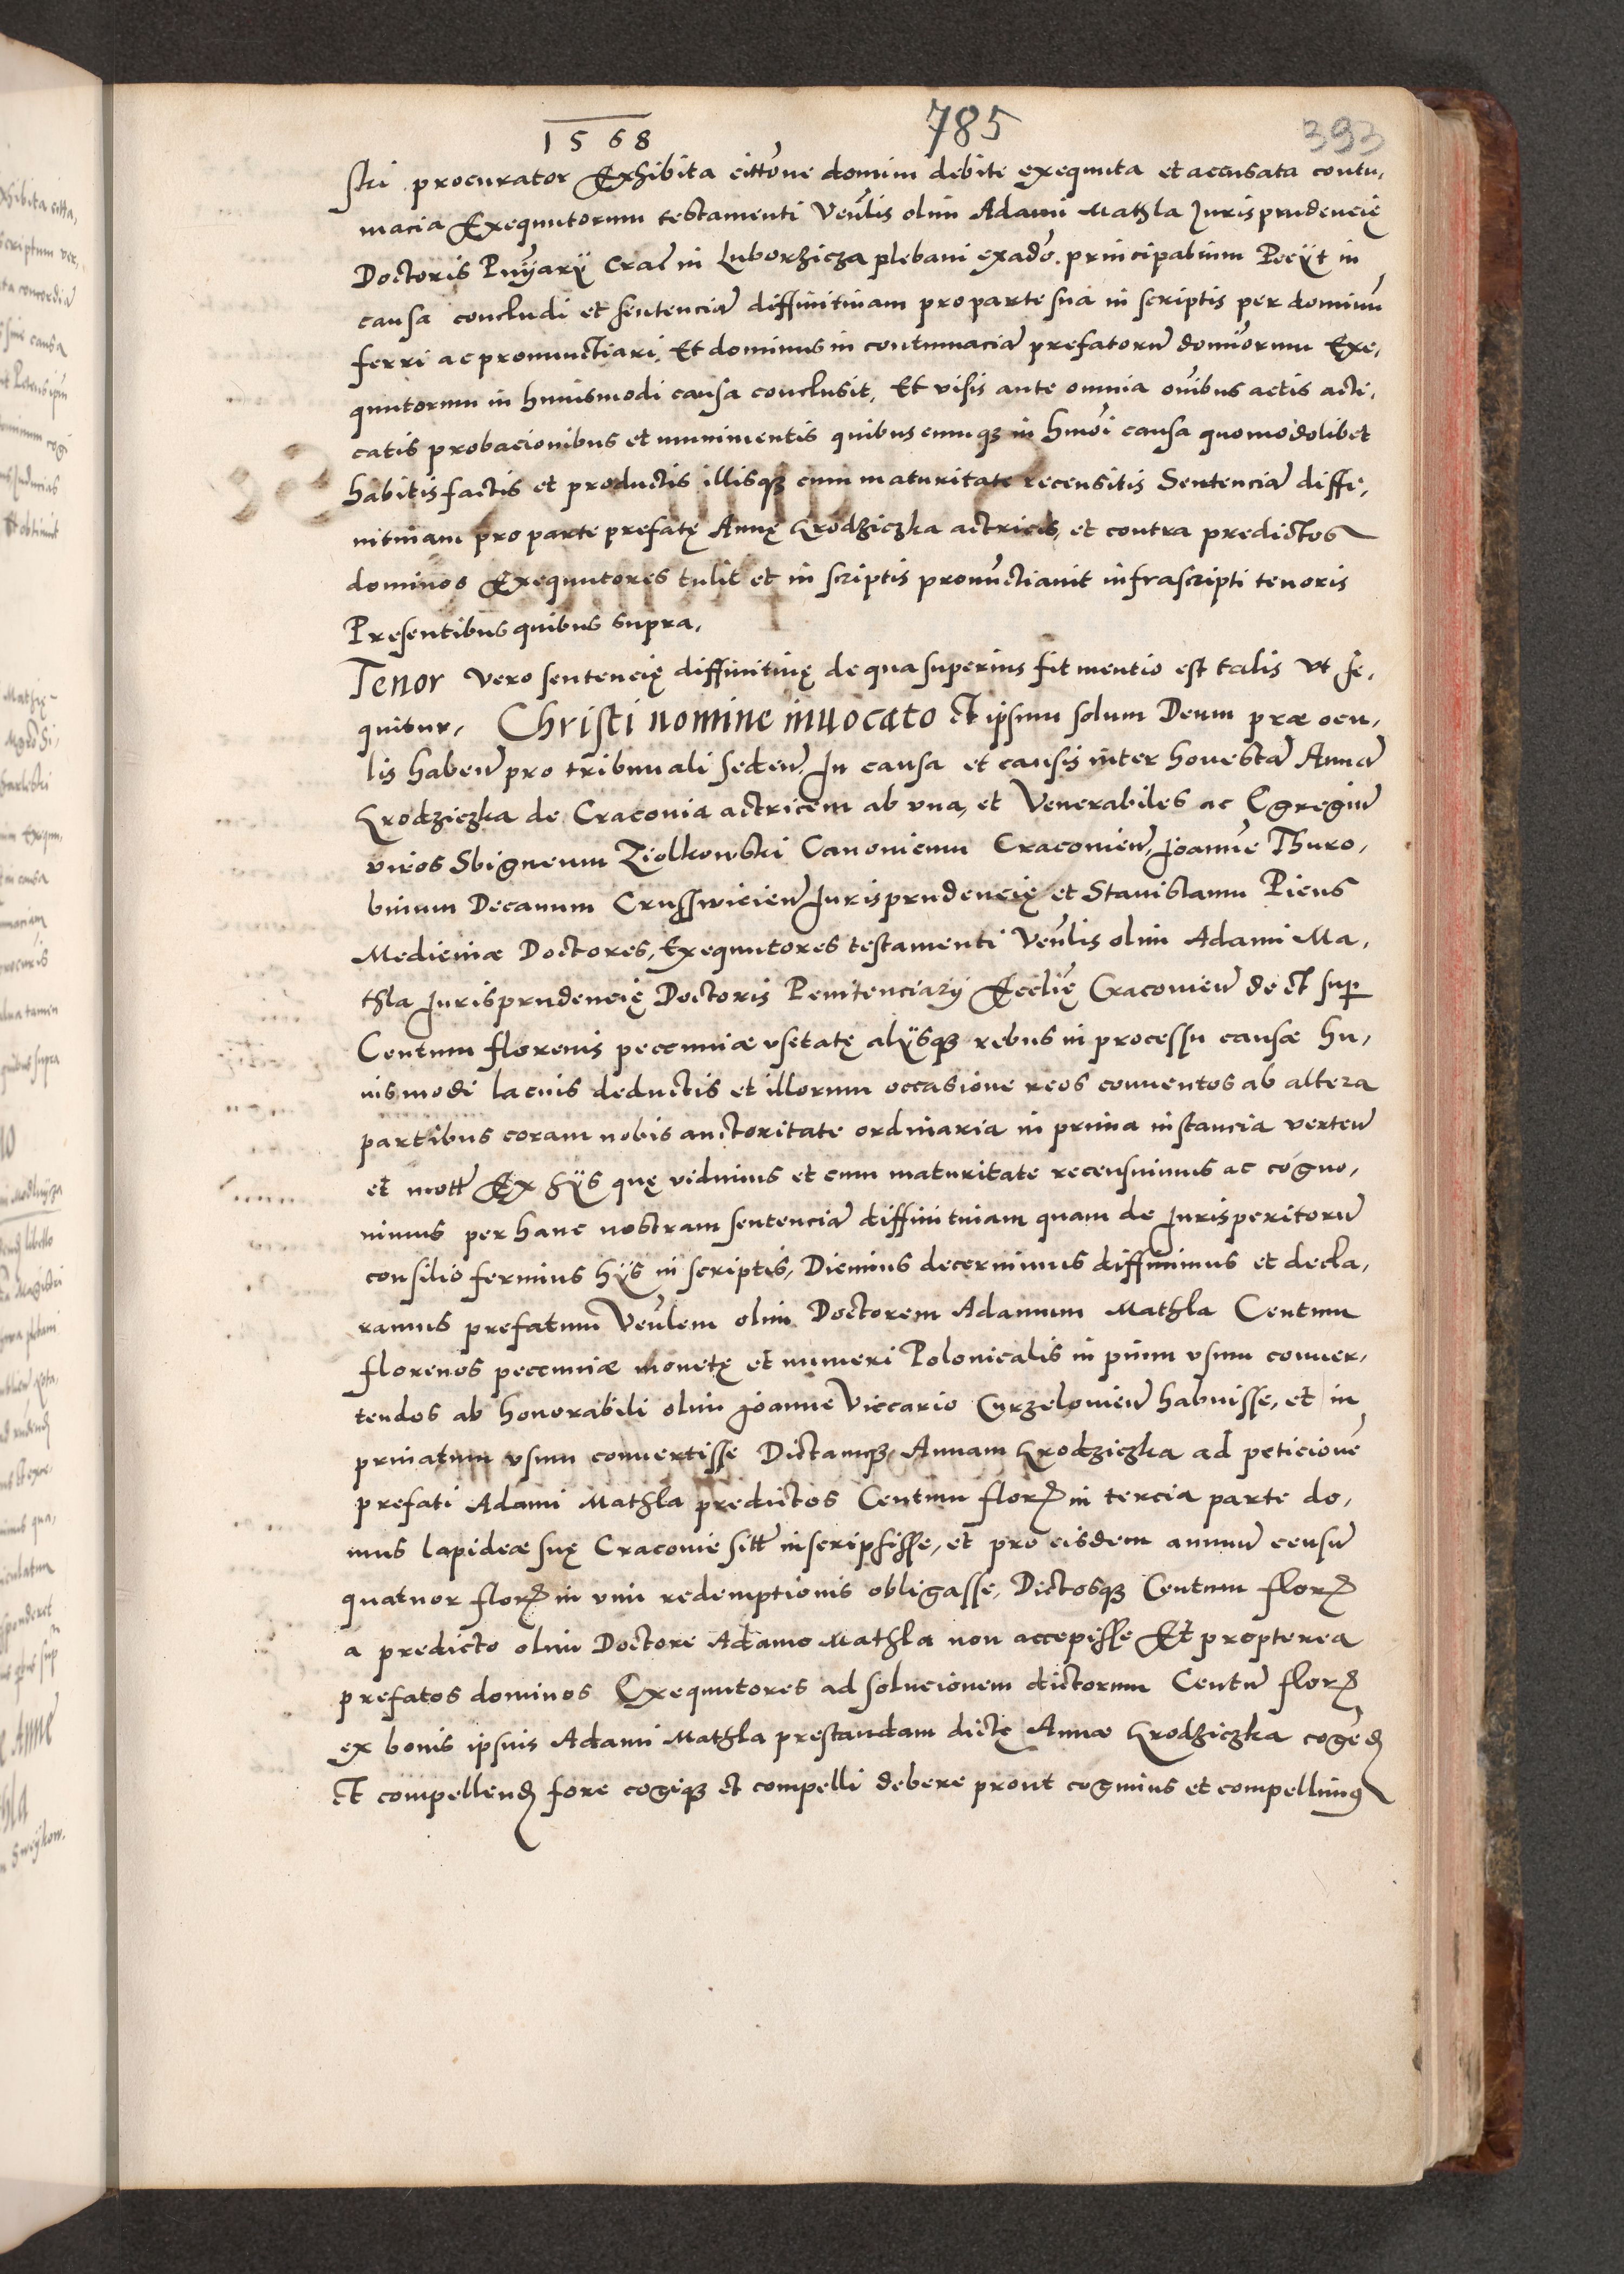 1568
785
393
stri procurator Exhibita cittõne domini debite exequuta et accusata contu,
macia Exequutorum testamenti Veñlis olim Adami Mathla Jurisprudencię
Doctoris Pnÿarÿ Crac̃ in Luborzicza plebani ex adõ. principalium Peciit in
causa concludi et sentenciã diffinitiuam pro parte sua in scriptis per dominũ
ferri ac pronunctiari. Et dominus in contumaciã prefatorũ domiõrum Exe,
quutorum in huiusmodi causa conclusit, Et visis ante omnia oĩbus actis acti,
catis probacionibus et munimentis quibuscumqȝ in hmõi causa quomodolibet
habitis factis et productis illisqȝ cum maturitate recensitis Sentenciã diffi,
nitiuam pro parte prefatę Annę Grodziczka actricis, et contra predictos
dominos Exequutores tulit et in scriptis pronũctiauit infrascripti tenoris
Presentibus quibus supra,
Tenor vero sentencię diffinitiuę de qua superius fit mentio est talis vt se,
quitur, Christi nomine inuocato Et ipsum solum Deum præ ocu,
lis habeñ pro tribunali sedeñ, In causa et causis inter honestã Annã
Grodziczka de Craconia actricem ab vna, et Venerabiles ac Egregiũ
viros Sbigneum Ziolkowski Canonicum Cracouieñ, Joannẽ Thuro,
binum Decanum Crusswicieñ Jurisprudencię et Stanislaum Picus
Medicinæ Doctores, Exequutores testamenti Veñlis olim Adami Ma,
thla Jurisprudencię Doctoris Penitenciarÿ Ecclię Cracouieñ de et sup
Centum florenis peccuniæ vsitatę alÿsqȝ rebus in processu causæ hu,
iusmodi lacius deductis et illorum occasione reos conuentos ab altera
partibus coram nobis auctoritate ordinaria in prima instancia verteñ
et mott̃ Ex hÿs quę vidimus et cum maturitate recensuimus ac cogno,
uimus per hanc nostram sentenciã diffinitiuam quam de Jurisperitorũ
consilio ferimus hÿs in scriptis, Dicimus decernimus diffinimus et decla,
ramus prefatum Veñlem olim Doctorem Adamum Mathla Centum
florenos peccuniæ monetę et numeri Polonicalis in pium vsum conuer,
tendos ab honorabili olim Joanne Viccario Curzelouieñ habuisse, et in
priuatum vsum conuertisse Dictamqȝ Annam Grodziczka ad peticionẽ
prefati Adami Mathla predictos Centum floꝝ in tercia parte do,
mus lapideæ suę Cracouie sitt̃ inscripsisse, et pro eisdem annuũ censũ
quatuor floꝝ in vim redemptionis obligasse, Dictosqȝ Centum floꝝ
a predicto olim Doctore Adamo Mathla non accepisse Et propterea
prefatos dominos Exequutores ad solucionem dictorum Centũ floꝝ
ex bonis ipsius Adami Mathla prestandam dictę Annæ Grodziczka cogẽd
Et compellend fore cogiqȝ et compelli debere prout cogimus et compellimus